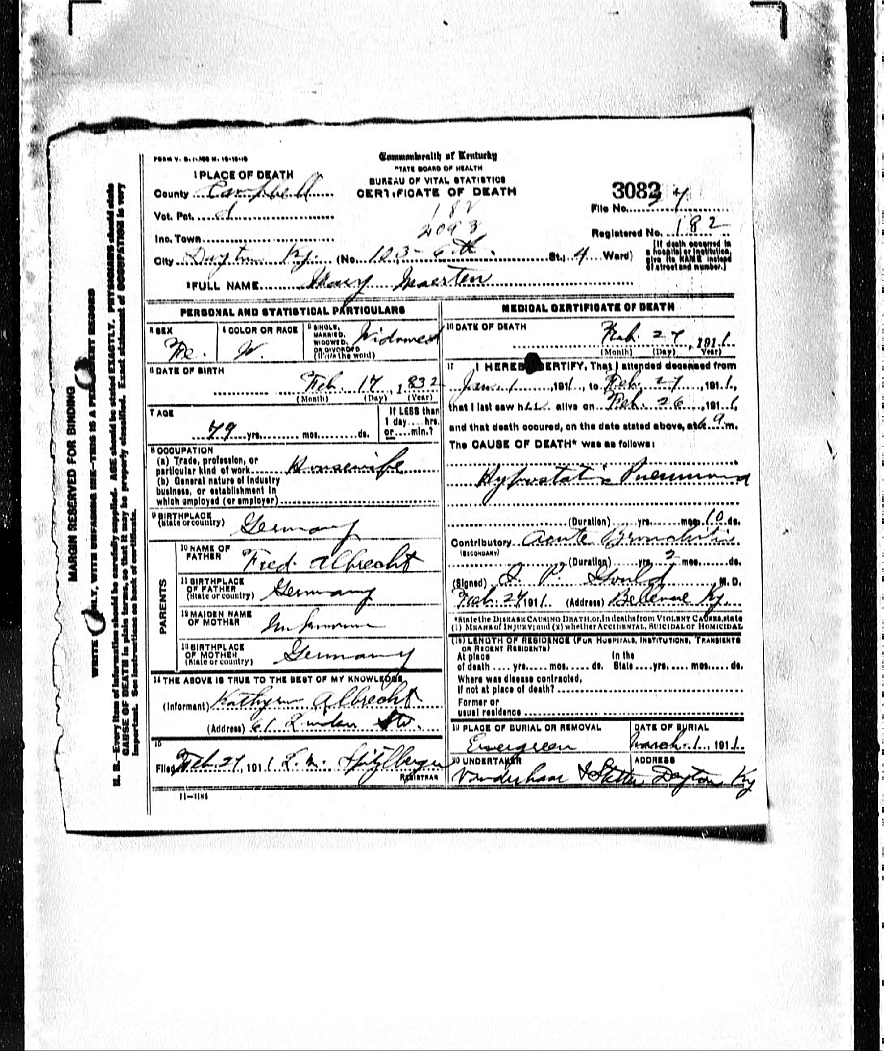 FORM V. S. 1-
Commonwealth of Kentucky
STATE BOARD OF HEALTH
BUREAU OF VITAL STATISTICS
CERTIFICATE OF DEATH
1 PLACE OF DEATH
County Campbell
Vot. Pct. 2
Inc. Town
City Dayton Ky. (No. 103- 6th St.; 4 Ward)
182
2093
3082
File No.
Registered No. 182
[If death occurred in a hospital or institution, give its NAME instead of street and number.]
2 FULL NAME Mary Maerten
PERSONAL AND STATISTICAL PARTICULARS
3 SEX Fe.
4 COLOR OR RACE W.
5 SINGLE, MARRIED, WIDOWED, OR DIVORCED (Write the word) Widowed
6 DATE OF BIRTH
Feb. 17, 1832
(Month) (Day) (Year)
7 AGE
79 yrs. mos. ds.
If LESS than 1 day... hrs. or ... min.?
8 OCCUPATION
(a) Trade, profession, or particular kind of work Housewife
(b) General nature of industry business, or establishment in which employed (or employer)
9 BIRTHPLACE (State or country) Germany
PARENTS
10 NAME OF FATHER Fred. Albrecht
11 BIRTHPLACE OF FATHER (State or country) Germany
12 MAIDEN NAME OF MOTHER Unknown
13 BIRTHPLACE OF MOTHER (State or country) Germany
14 THE ABOVE IS TRUE TO THE BEST OF MY KNOWLEDGE
(Informant) Kathryn Albrecht
(Address) 61 Linden
15
Filed Feb. 27, 1911 L. M. Spitzlberger
REGISTRAR
11-3184
MEDICAL CERTIFICATE OF DEATH
16 DATE OF DEATH
Feb. 27, 1911
(Month) (Day) Year)
17 I HEREBY CERTIFY, That I attended deceased from
Jan. 1, 1911, to Feb. 27, 1911,
that I last saw her alive on Feb. 26, 1911,
and that death occured, on the date stated above, at 6 a m.
The CAUSE OF DEATH* was as follows:
Hypostatic Pneumonia
(Duration) yrs. mos. 10 ds.
Contributory Acute Bronchitis
(SECONDARY)
(Duration) yrs. 2 mos. ds.
(Signed) Gould M. D.
Feb. 27 1911 (Address) Bellevue Ky
*State the DISEASE CAUSING DEATH, or, in deaths from VIOLENT CAUSES, state
(1) MEANS OF INJURY; and (2) whether ACCIDENTAL, SUICIDAL or HOMICIDAL
(18) LENGTH OF RESIDENCE (FOR HOSPITALS, INSTITUTIONS, TRANSIENTS OR RECENT RESIDENTS)
At place of death yrs. mos. ds. In the State yrs. mos. ds.
Where was disease contracted,
If not at place of death?
Former or
usual residence
19 PLACE OF BURIAL OR REMOVAL
Evergreen
DATE OF BURIAL
March. 1, 1911.
20 UNDERTAKER
Vonderhaar & Stetter
ADDRESS
Dayton Ky
MARGIN RESERVED FOR BINDING
N. B.—Every item of information should be carefully supplied. AGE should be stated EXACTLY. PHYSICIANS should state
CAUSE OF DEATH in plain terms, so that it may be properly classified. Exact statement of OCCUPATION is very
important. See instructions on back of certificate.